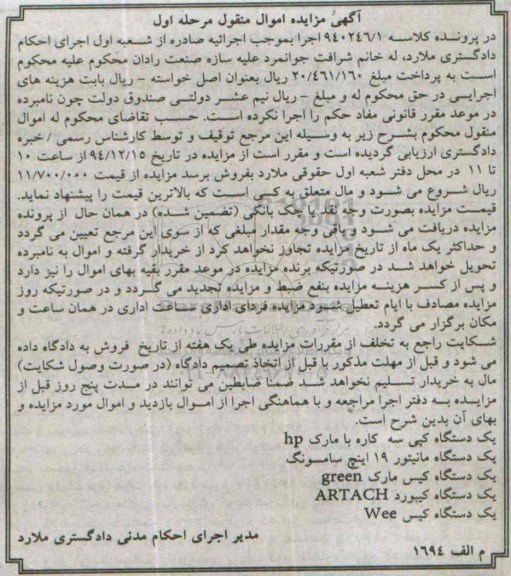 آگهی مزایده اموال منقول مرحله اول
در پرونده کلاسه ۹۴۰۲۴۶/۱ اجرا بموجب اجرائیه صادره از شعبه اول اجرای احکام
دادگستری ملارد، له خانم شرافت جوانمرد علیه سازه صنعت رادان محکوم علیه محکوم
است به پرداخت مبلغ ۲۰/۴۶۱/۱۶۰ ریال بعنوان اصل خواسته – ریال بابت هزینه های
اجرایی در حق محکوم له و مبلغ – ریال نیم عشر دولتی صندوق دولت چون نامبرده
در موعد مقرر قانونی مفاد حکم را اجرا نکرده است. حسب تقاضای محکوم له اموال
منقول محکوم بشرح زیر به وسیله این مرجع توقیف و توسط کارشناس رسمی / خبره
دادگستری ارزیابی گردیده است و مقرر است از مزایده در تاریخ ۹۴/۱۲/۱۵ از ساعت ۱۰
تا ۱۱ در محل دفتر شعبه اول حقوقی ملارد بفروش برسد مزایده از قیمت ۱۱/۷۰۰/۰۰۰
ریال شروع می شود و مال متعلق به کسی است که بالاترین قیمت را پیشنهاد نماید.
قیمت مزایده بصورت وجه نقد یا چک بانکی (تضمین شده) در همان حال از پرونده
مزایده دریافت می شود و باقی وجه مقدار مبلغی که از سوی این مرجع تعیین می گردد
و حداکثر یک ماه از تاریخ مزایده تجاوز نخواهد کرد از خریدار گرفته و اموال به نامبرده
تحویل خواهد شد در صورتیکه برنده مزایده در موعد مقرر بقیه بهای اموال را نیز دارد
و پس از کسر هزینه مزایده بنفع ضبط و مزایده تجدید می گردد و در صورتیکه روز
مزایده مصادف با ایام تعطیل شود مزایده فردای اداری ساعت اداری در همان ساعت و
مکان برگزار می گردد.
شکایت راجع به تخلف از مقررات مزایده طی یک هفته از تاریخ فروش به دادگاه داده
می شود و قبل از مهلت مذکور یا قبل از اتخاذ تصمیم دادگاه (در صورت وصول شکایت)
مال به خریدار تسلیم نخواهد شد ضمنا ضابطین می توانند در مدت پنج روز قبل از
مزایده به دفتر اجرا مراجعه و با هماهنگی اجرا از اموال بازدید و اموال مورد مزایده و
بهای آن بدین شرح است.
یک دستگاه کپی سه کاره با مارک hp
یک دستگاه مانیتور ۱۹ اینچ سامسونگ
یک دستگاه کیس مارک green
یک دستگاه کیبورد ARTACH
یک دستگاه کیس Wee
مدیر اجرای احکام مدنی دادگستری ملارد
م الف ۱۶۹۴